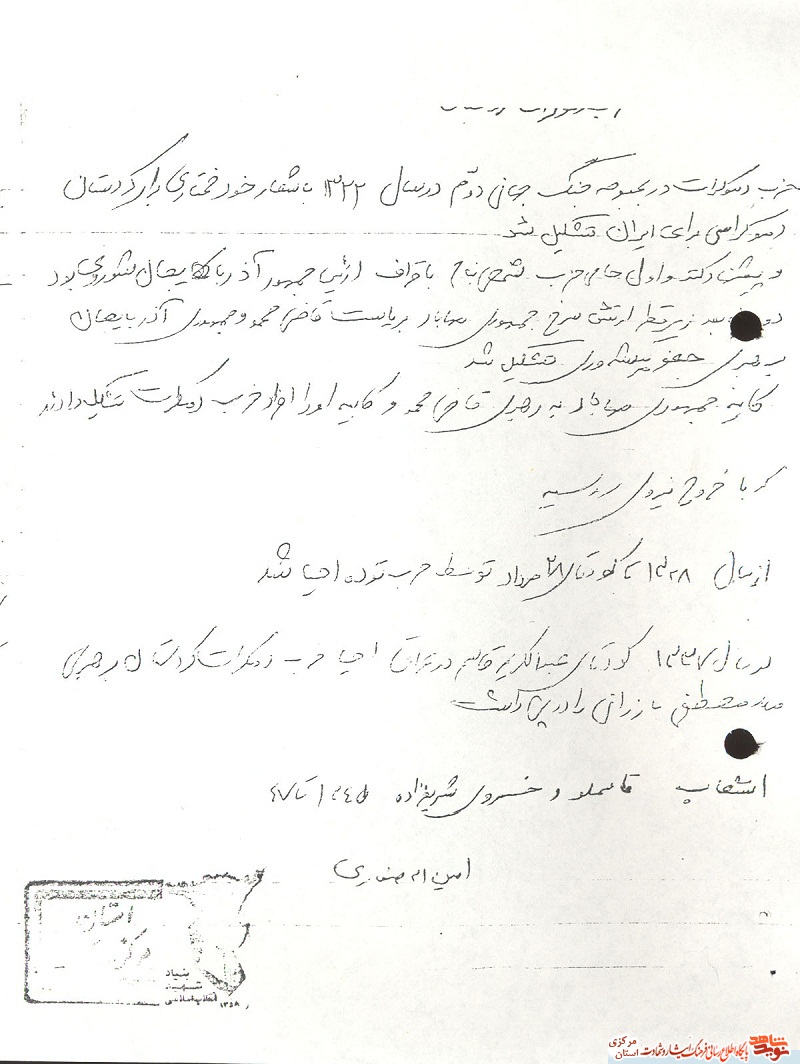 حزب دموکرات در بحبوحه جنگ جهانی دوّم در سال ۱۳۲۲ با شعار خودمختاری برای کردستان
دموکراسی برای ایران تشکیل شد
و پیشنهاد و اول حامی حزب شخصی بنام باقراف رئیس جمهور آذربایجان شوروی بود
بعد زیر نظر ارتش سرخ جمهوری مهاباد بریاست قاضی محمد و جمهوری آذربایجان
برهبری جعفر پیشه‌وری تشکیل شد
کابینه جمهوری مهاباد به رهبری قاضی محمد و کابینه او را افراد حزب دمکرات تشکیل دادند
که با خروج نیروی روسیه
از سال ۱۳۲۸ تا کودتای ۲۸ مرداد توسط حزب توده احیا شد
در سال ۱۳۳۷ کودتای عبدالکریم قاسم در عراق احیا حزب دمکرات کردستان رهبری
ملا مصطفی بارزانی را در پی داشت
انشعاب قاسملو و خسروی شریف‌زاده ۱۳۴۵ تا ۴۷
امین اله صفاری
استان
مرکزی
بنیاد
شهید
انقلاب اسلامی
۱۳۵۸
نوید شاهد
پایگاه اطلاع رسانی فرهنگ ایثار و شهادت
مرکزی
استان